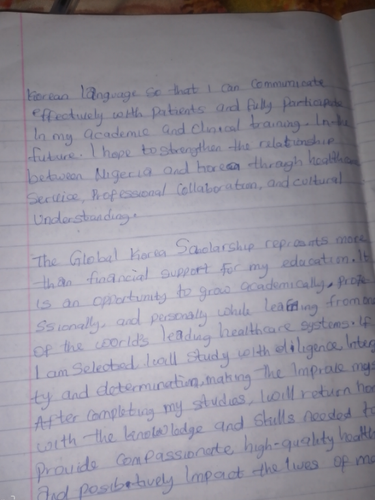 Korean language so that I can communicate
effectively with patients and fully participate
In my academic and clinical training. In the
future. I hope to strengthen the relationship
between Nigeria and korea through healthcare
Service, Professional Collaboration, and cultural
Understanding.
The Global Korea Scholarship represents more
than financial support for my education. It
is an opportunity to grow academically, profe
ssionally, and personally while learning from one
of the world's leading healthcare systems. If
I am Selected I will Study with diligence, Integri
ty and determination, making the
After completing my studies, I will return hom
with the knowledge and skills needed to
Provide Compassionate, high-quality health
And positively Impact the lives of